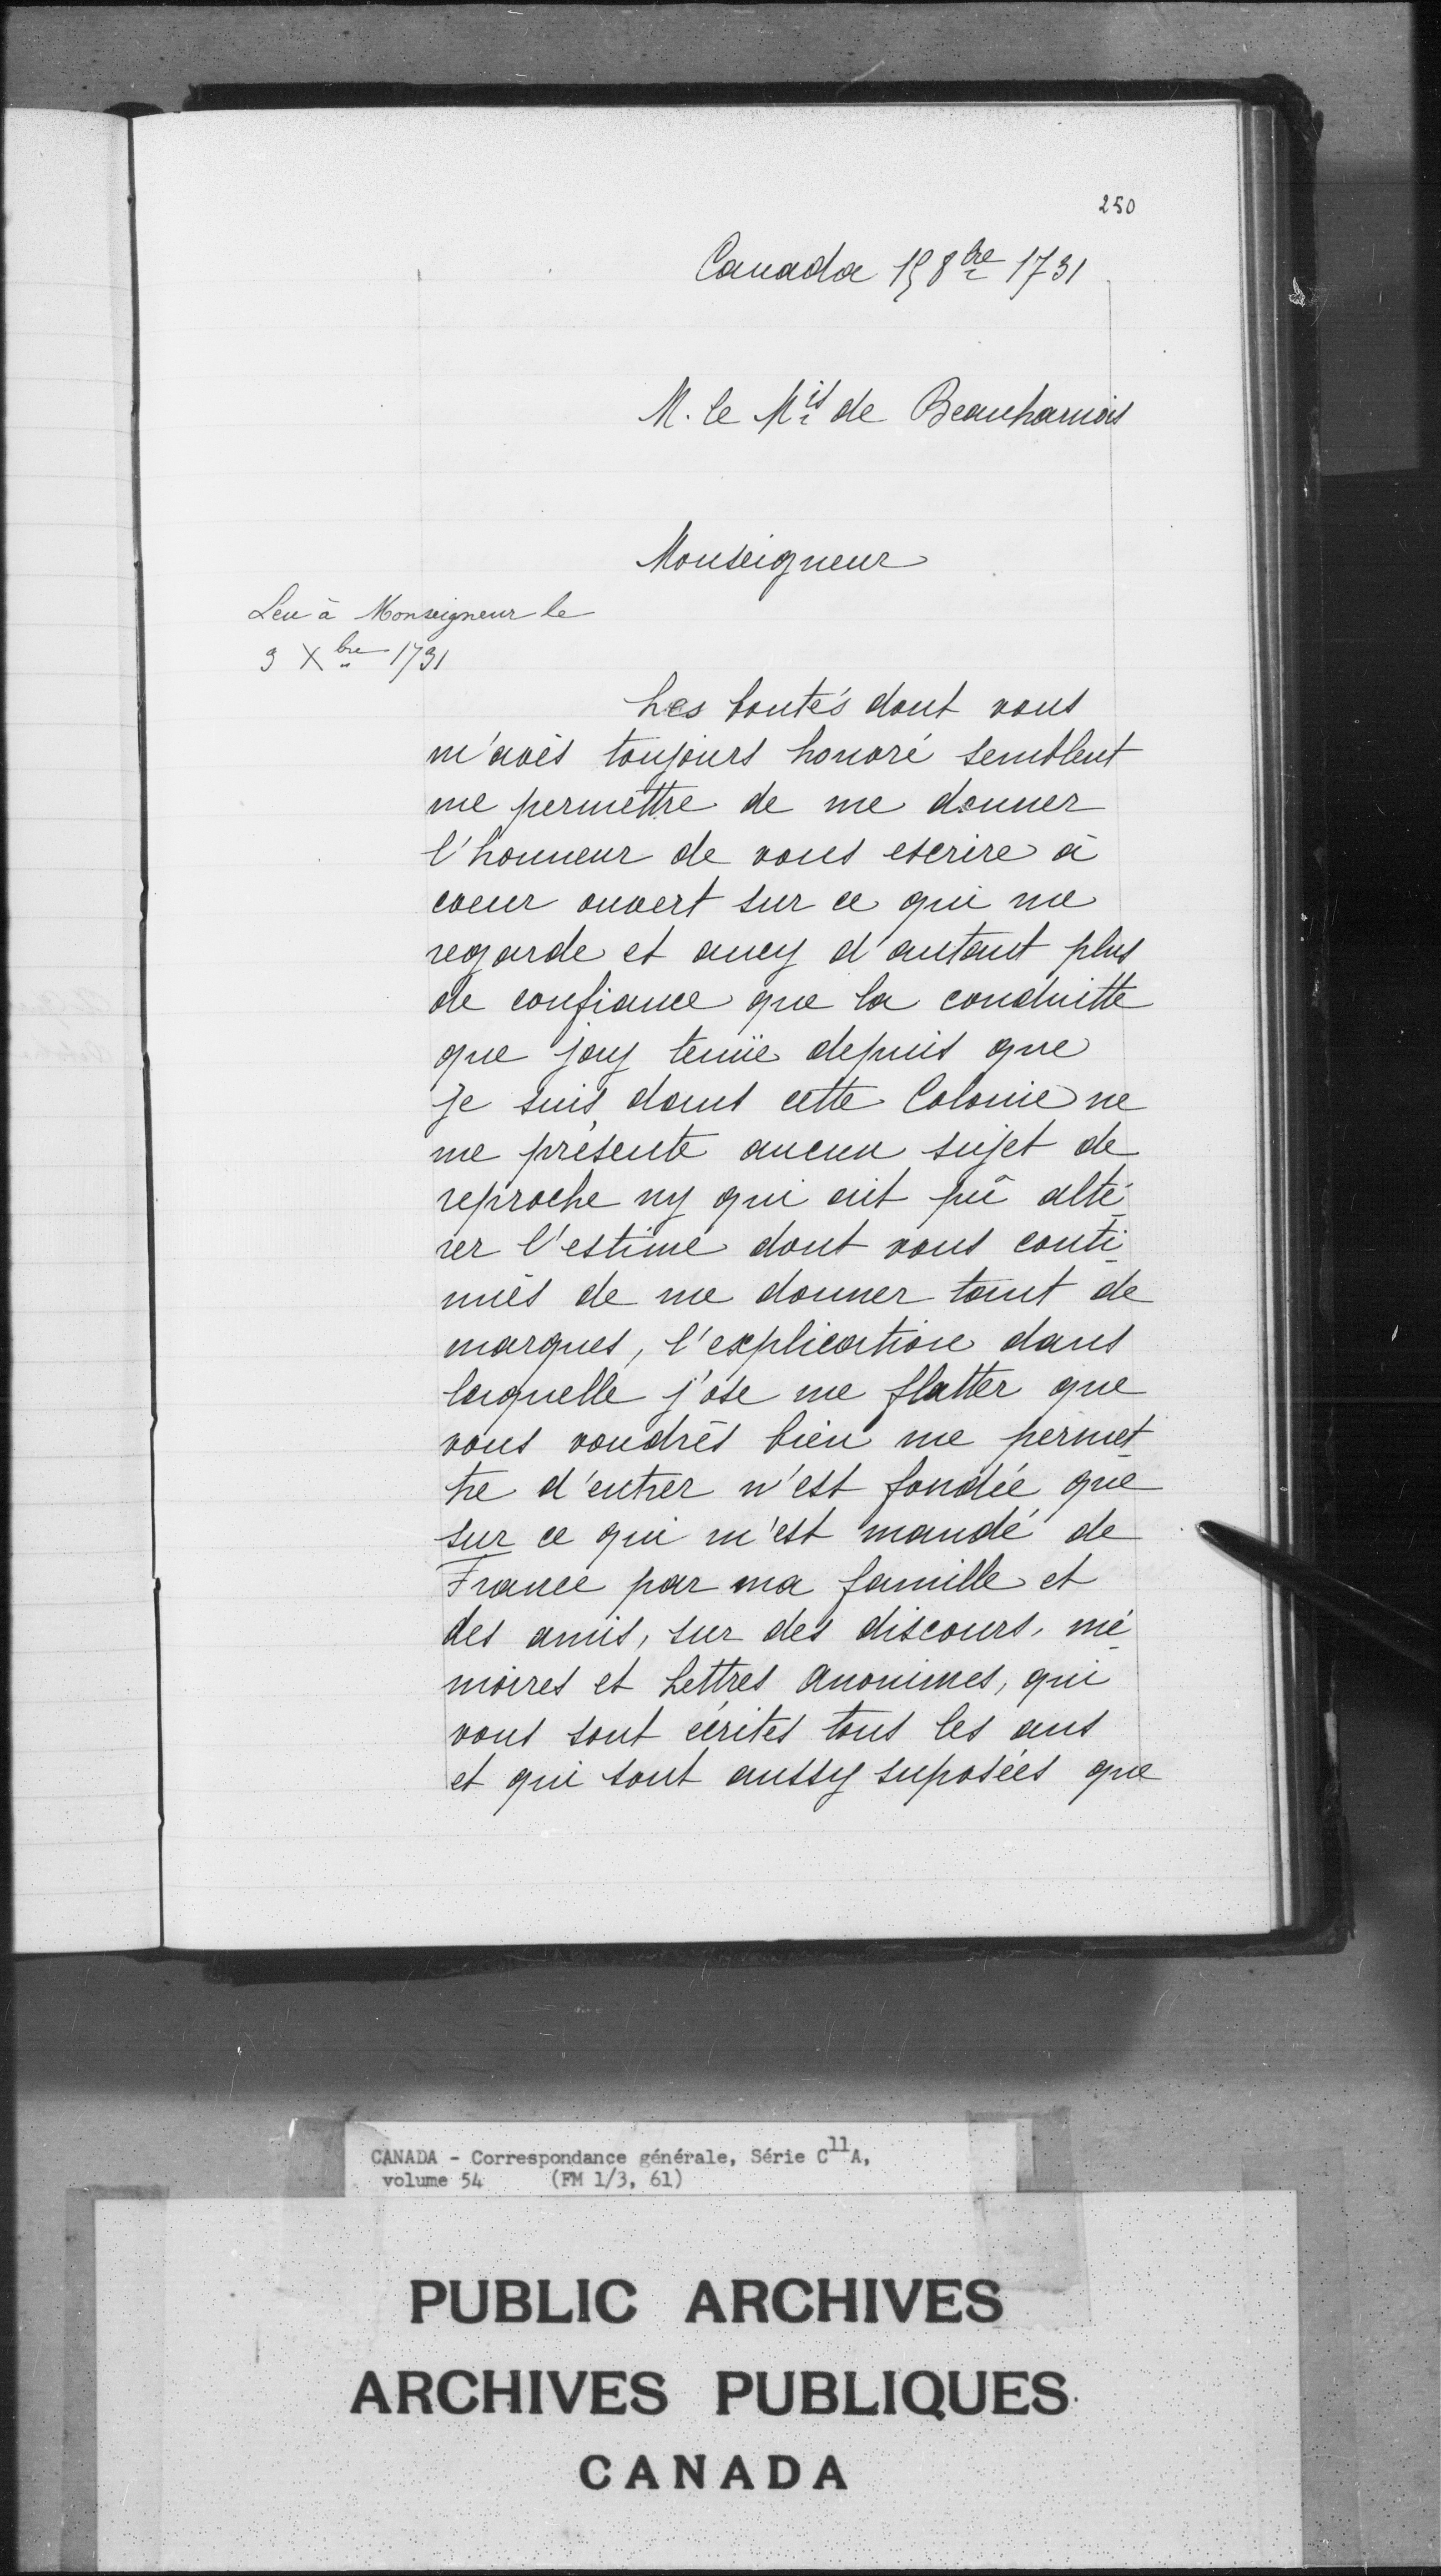 250
Canada 15 8bre 1731
M. le Mis de Beauharnois
Monseigneur
Leu à Monseigneur le
3 Xbre 1731
Les bontés dont vous
m'avés toujours honoré semblent
me permettre de me donner
l'honneur de vous escrire à
coeur ouvert sur ce qui me
regarde et avey d'autant plus
de confiance que la conduitte
que j'ay tenüe depuis que
je suis dans cette Colonie ne
me présente aucun sujet de
reproche ny qui ait pû alté-
rer l'estime dont vous conti-
nués de me donner tant de
marques, l'explication dans
laquelle j'ose me flatter que
vous voudrés bien me permet-
tre d'entrer n'est fondée que
sur ce qui m'est mandé de
France par ma famille et
des amis, sur des discours, mé-
moires et Lettres anonimes, qui
vous sont écrites tous les ans
et qui sont aussy suposées que
CANADA - Correspondance générale, Série C11A,
volume 54 (FM 1/3, 61)
PUBLIC ARCHIVES
ARCHIVES PUBLIQUES
CANADA